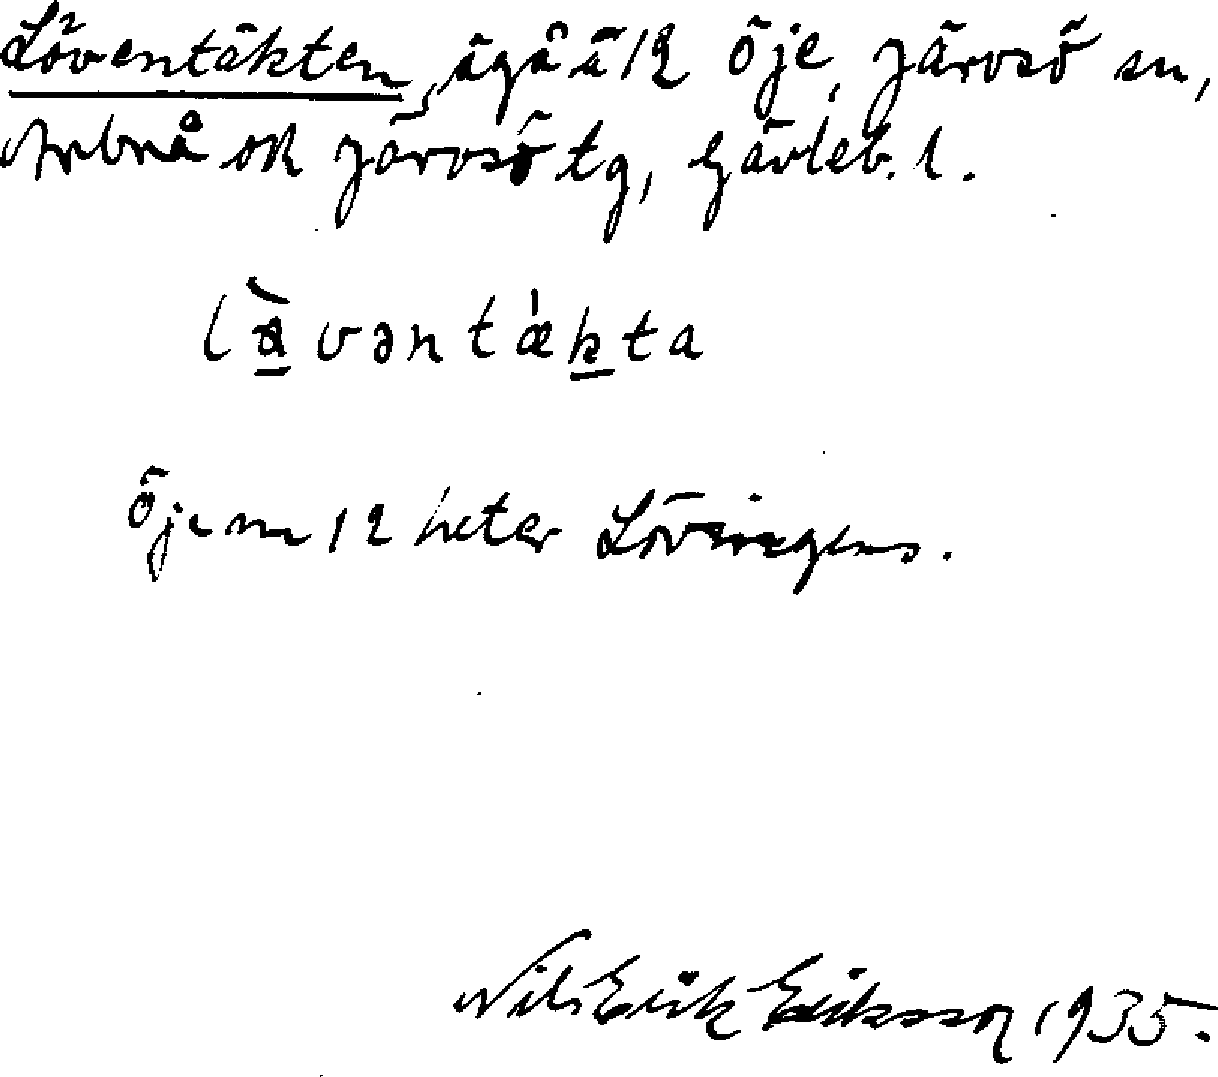 Löventäkten, ägå å 12 Öje, Järvsö sn,
Arbrå ok Järvsö tg, Gävleb. l.
lὰvəntǽkta
Öje nr 12 heter Lövingens.
Nils Erik Eriksson 1935.